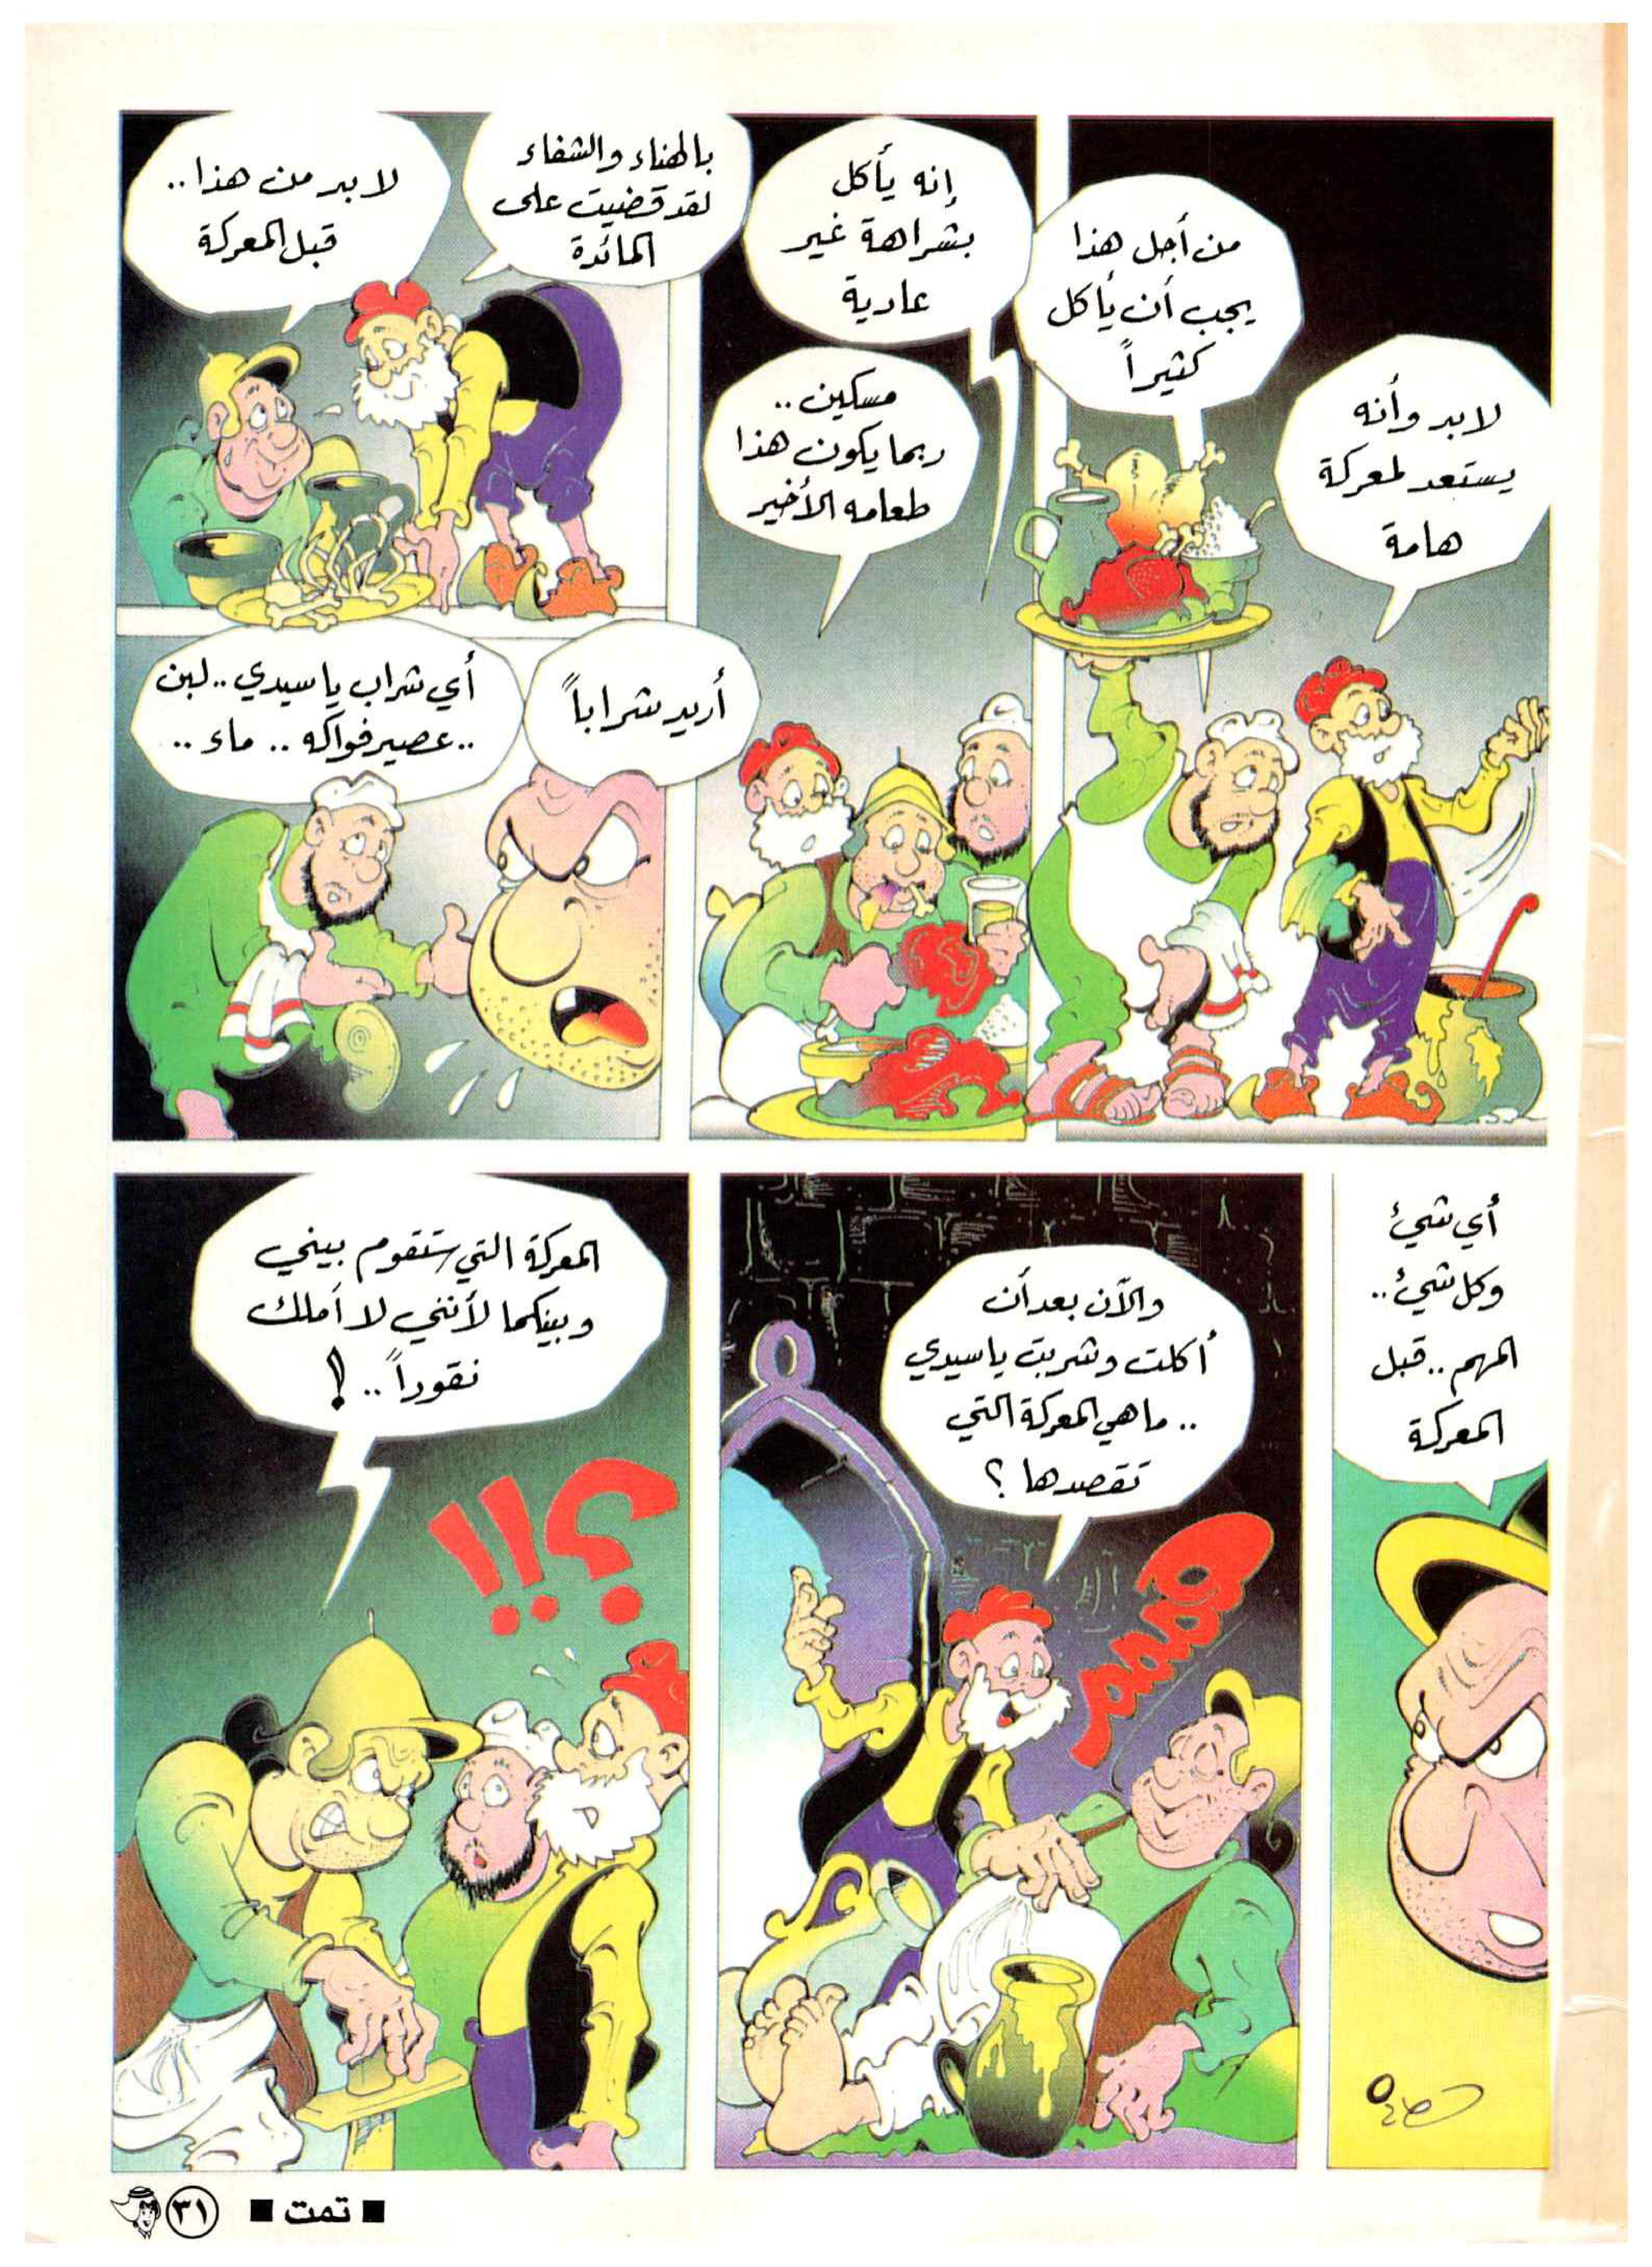 لابد وأنه
يستعد لمعركة
هامة
من أجل هذا
يجب أن يأكل
كثيراً
إنه يأكل
بشراهة غير
عادية
مسكين ..
ربما يكون هذا
طعامه الأخير
بالهناء والشفاء
لقد قضيت على
المائدة
لابد من هذا ..
قبل المعركة
أريد شراباً
أي شراب ياسيدي .. لبن
.. عصير فواكه .. ماء ..
أي شيئ
وكل شيئ ..
المهم .. قبل
المعركة
والآن بعد أن
أكلت وشربت ياسيدي
.. ماهي المعركة التي
تقصدها ؟
هممم
المعركة التي ستقوم بيني
وبينكما لأنني لا أملك
نقوداً .. !
؟!!
■ تمت ■
٣١